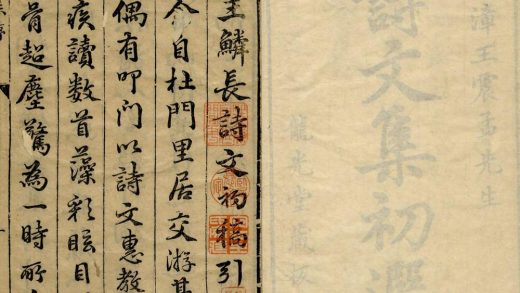 漳王震先生
詩文集初選
龍光堂藏板
王鱗長詩文初稿引
余自杜門里居交游甚
偶有叩門以詩文惠教
疾讀数首藻彩眩目
骨超塵驚為一時所